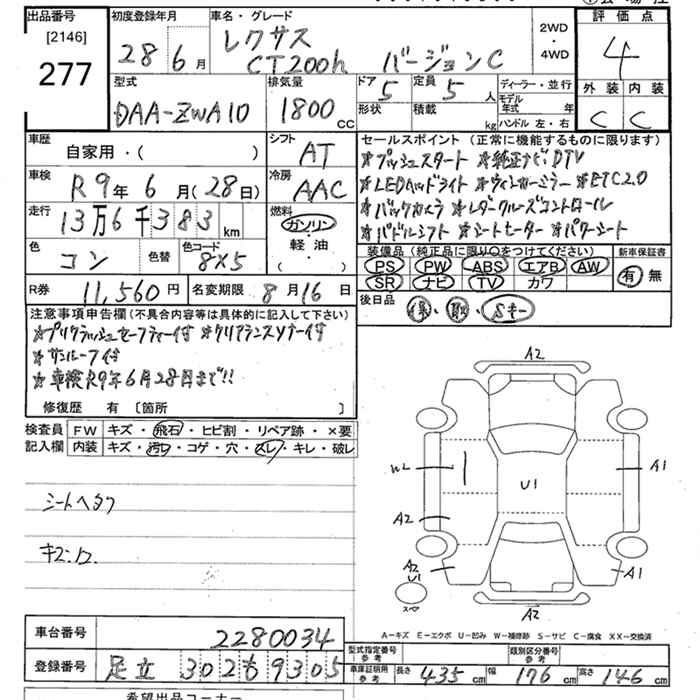 出品番号
[2146]
277
初度登録年月
28年6月
車名・グレード
レクサス
CT200h バージョンC
2WD
・
4WD
評価点
4
外装 内装
C C
型式
DAA-ZWA10
排気量
1800cc
ドア 5
形状
定員 5人
積載 kg
ディーラー・並行
モデル年式 年
ハンドル 左・右
車歴
自家用・( )
シフト
AT
車検
R9年6月(28日)
冷房
AAC
走行
13万6千383km
燃料
ガソリン
・
軽油
・
( )
色
コン
色替
色コード
8X5
R券 11,560円
名変期限 8月16日
セールスポイント (正常に機能するものに限ります)
*プッシュスタート *純正ナビDTV
*LEDヘッドライト *ウィンカーミラー *ETC2.0
*バックカメラ *レーダークルーズコントロール
*パドルシフト *シートヒーター *パワーシート
装備品 (純正品に限り○をつけてください)
PS PW ABS エアB AW
SR ナビ TV カワ
新車保証書
有 無
後日品
保・取・Sキー
注意事項申告欄(不具合内容等は具体的に記入して下さい)
*プリクラッシュセーフティー付 *クリアランスソナー付
*サンルーフ付
*車検R9年6月28日まで!!
修復歴 有 〔箇所 〕
検査員
記入欄
FW キズ・飛石・ヒビ割・リペア跡・×要
内装 キズ・汚れ・コゲ・穴・スレ・キレ・破レ
シートヘタリ
A2
W2
A2
U1
A1
A2
U1
A1
スペア
A2
A-キズ E-エクボ U-凹み W-補修跡 S-サビ C-腐食 XX-交換済
車台番号 2280034
登録番号 足立 302 も 9305
型式指定番号
参考
類別区分番号
参考
車庫証明用
参考
長さ 435cm 幅 176cm 高さ 146cm
希望出品コーナー